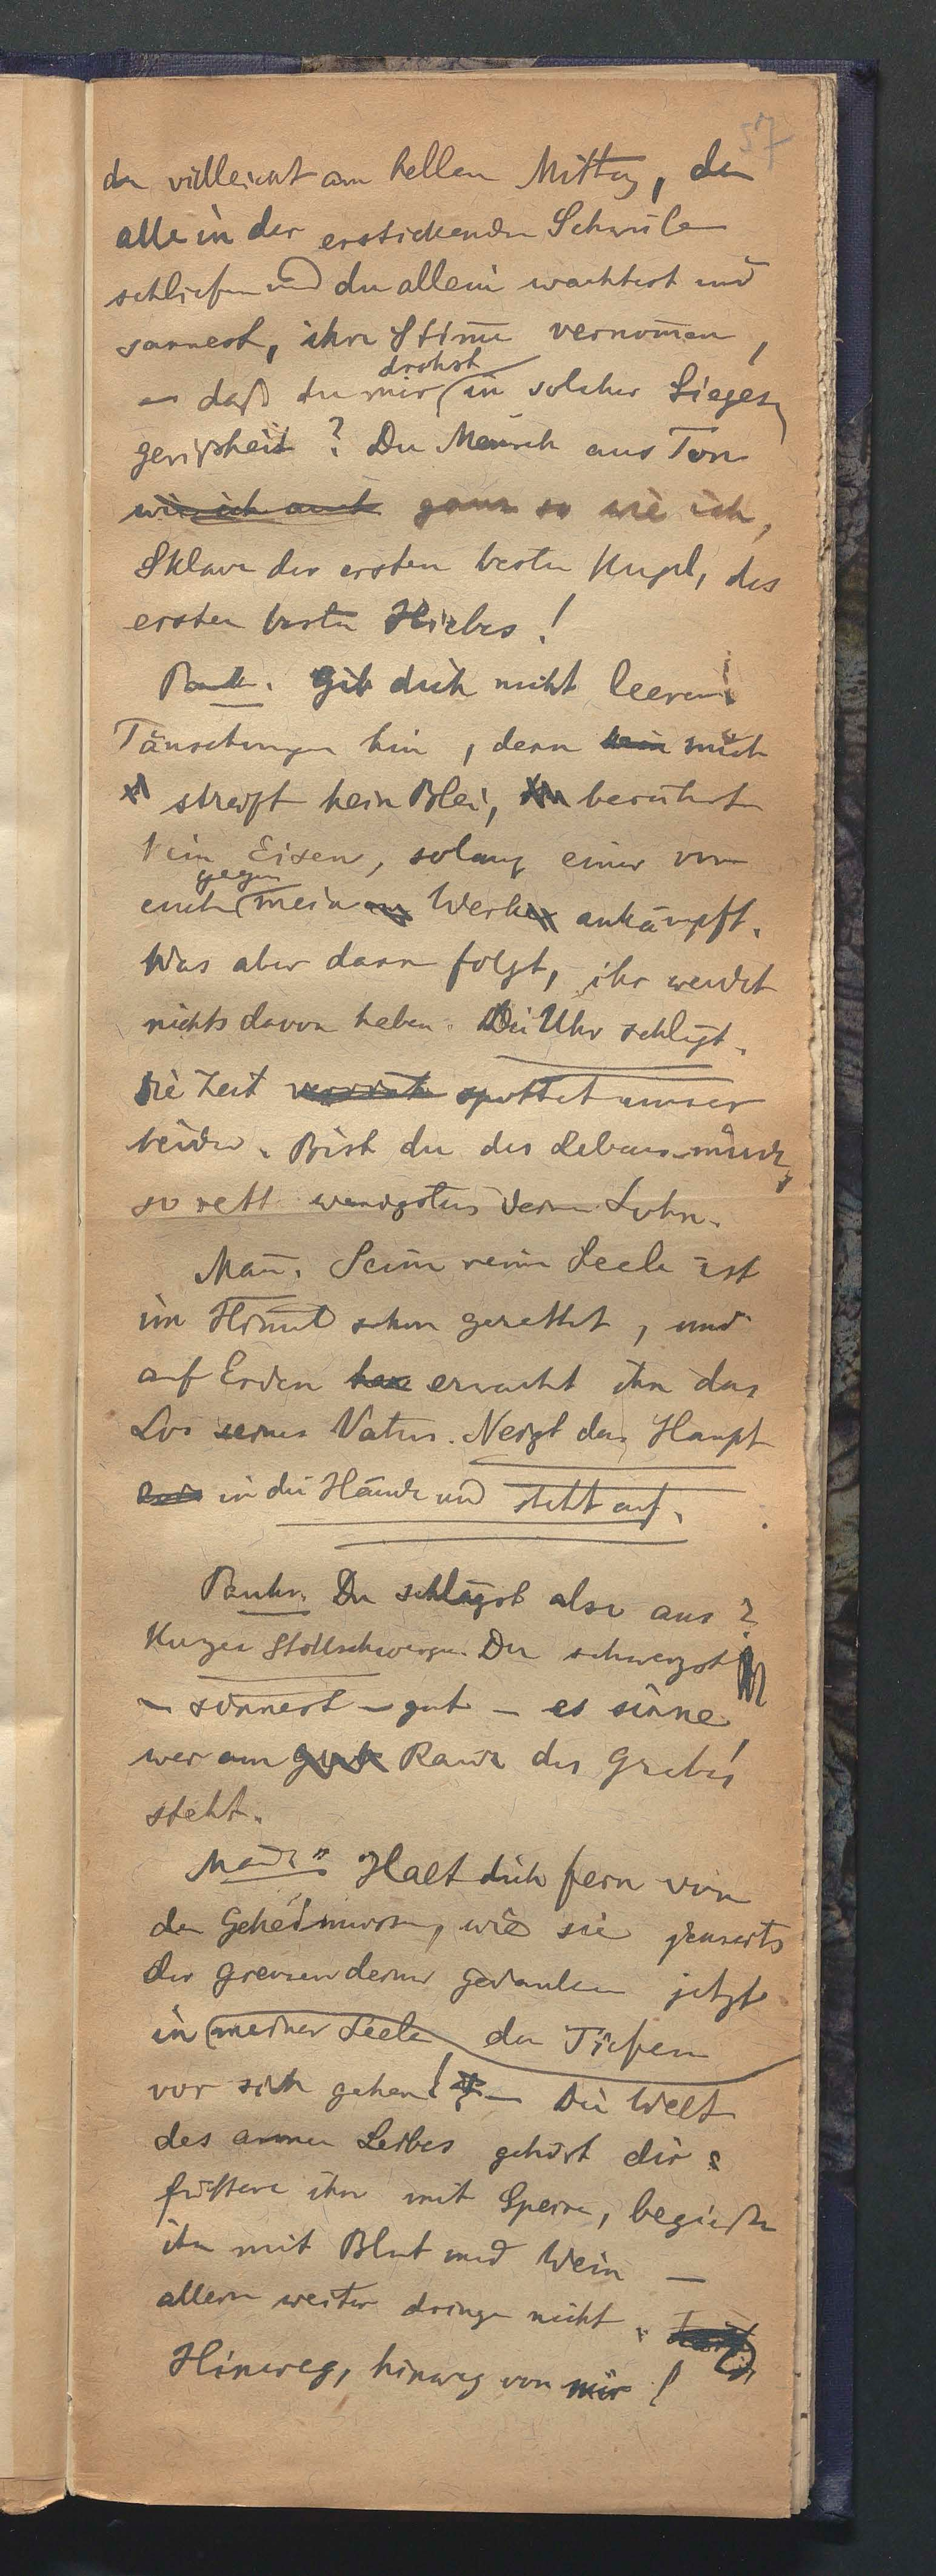 57
du vielleicht am hellen Mittag, da
alle in der erstickenden Schwüle
schliefen und du allein wachtest und
sannest, ihre Stim̄e vernom̄en,
drohst
— daß du mir in solcher Sieges-
gewißheit? Du Mensch aus Ton
wie ich auch ganz so wie ich,
Sklave der ersten besten Kugel, des
ersten besten Hiebes!
Gib dich nicht leeren
Täuschungen hin, denn kein mich
streift kein Blei, berührt
kein Eisen, solang einer von
gegen
euch mein Werk ankämpft.
Was aber dann folgt, ihr werdet
nichts davon haben. Die Uhr schlägt.
Die Zeit spottet unser
beider. Bist du des Lebens müde,
so rett wenigstens deinen Sohn.
Man̄. Seine reine Seele ist
im Him̄el schon gerettet, und
auf Erden erwartet ihn das
Los seines Vaters. Neigt das Haupt
in die Hände und steht auf.
Du schlägst also aus?
Kurzes Stillschweigen. Du schweigst
— sinnest — gut — es sinne
wer am Rande des Grabes
steht.
Halt dich fern von
den Geheimnissen, wie sie jenseits
der Grenzen deiner Gedanken jetzt
in meiner Seele den Tiefen
vor sich gehen! — Die Welt
des armen Leibes gehört dir:
füttere ihn mit Speise, begieße
ihn mit Blut und Wein —
allein weiter dringe nicht.
Hinweg, hinweg von mir!